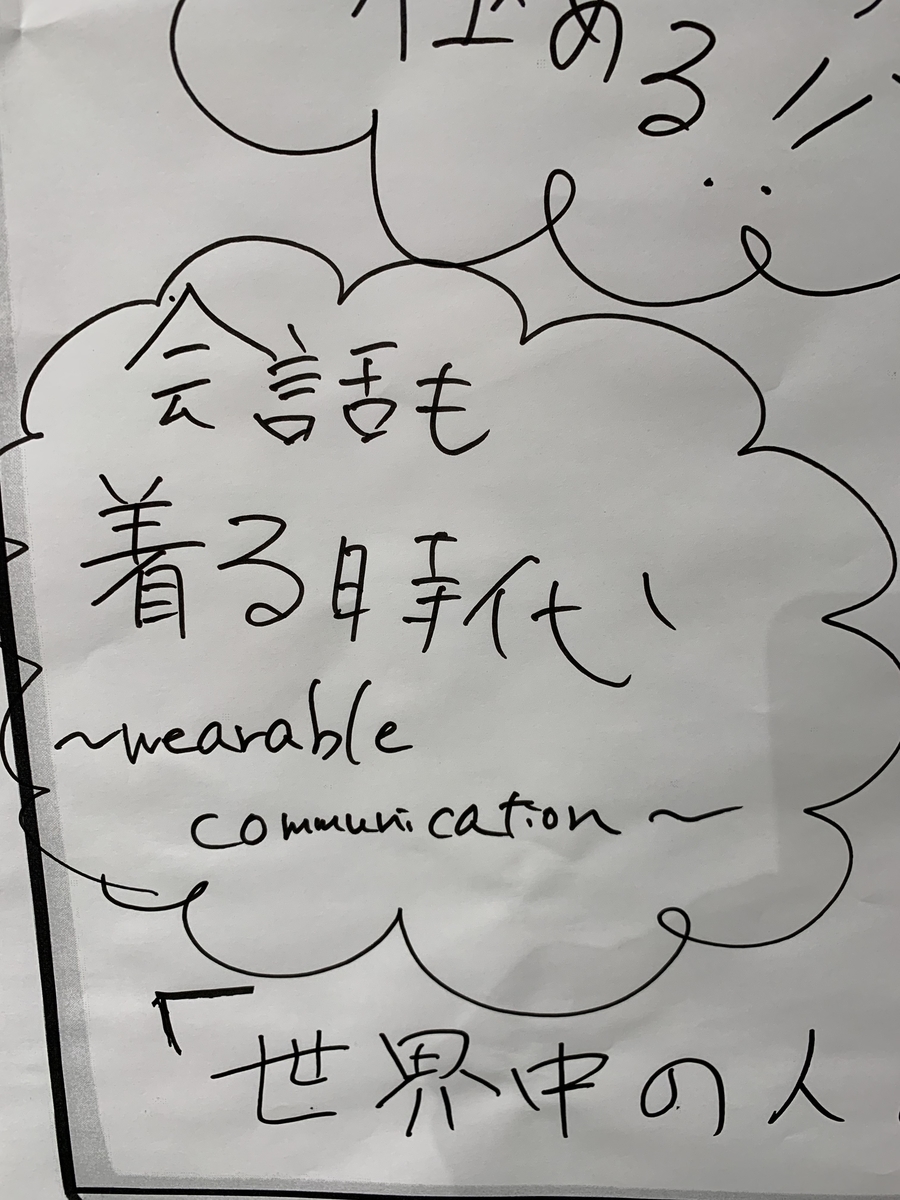 める
会話も
着る時代
~wearable
communication~
「世界中の人